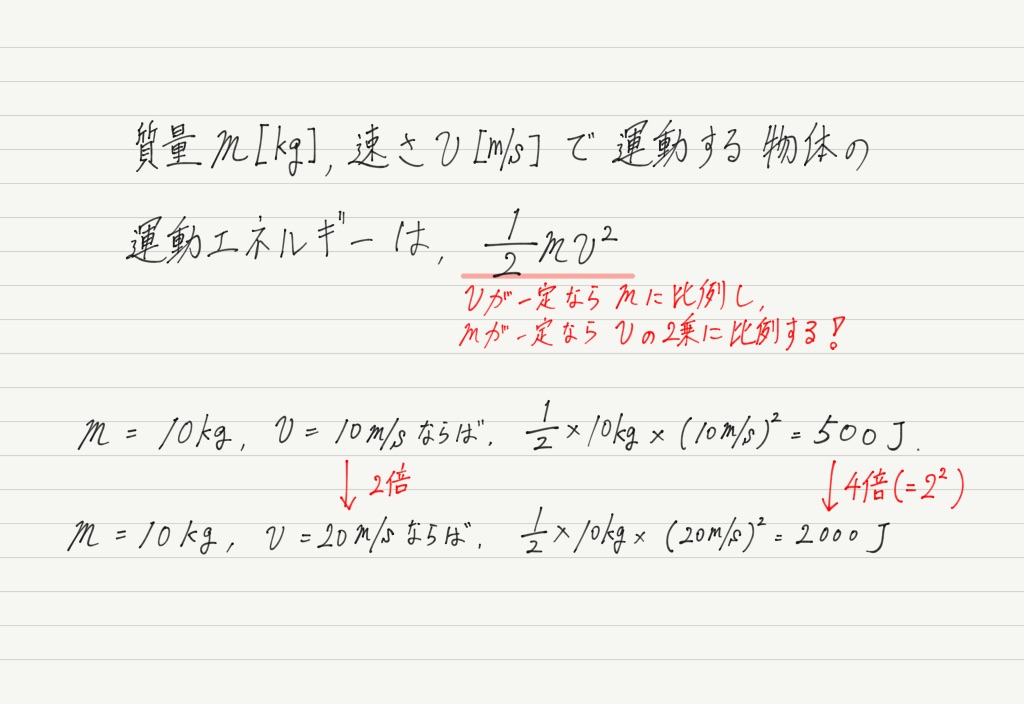 質量 m [kg], 速さ v [m/s] で 運動する 物体の
運動エネルギーは, 1/2 mv²
vが一定なら mに比例し,
mが一定なら vの2乗に比例する!
m = 10kg, v = 10m/s ならば, 1/2 × 10kg × (10m/s)² = 500 J.
↓ 2倍 ↓ 4倍 (=2²)
m = 10kg, v = 20m/s ならば, 1/2 × 10kg × (20m/s)² = 2000 J